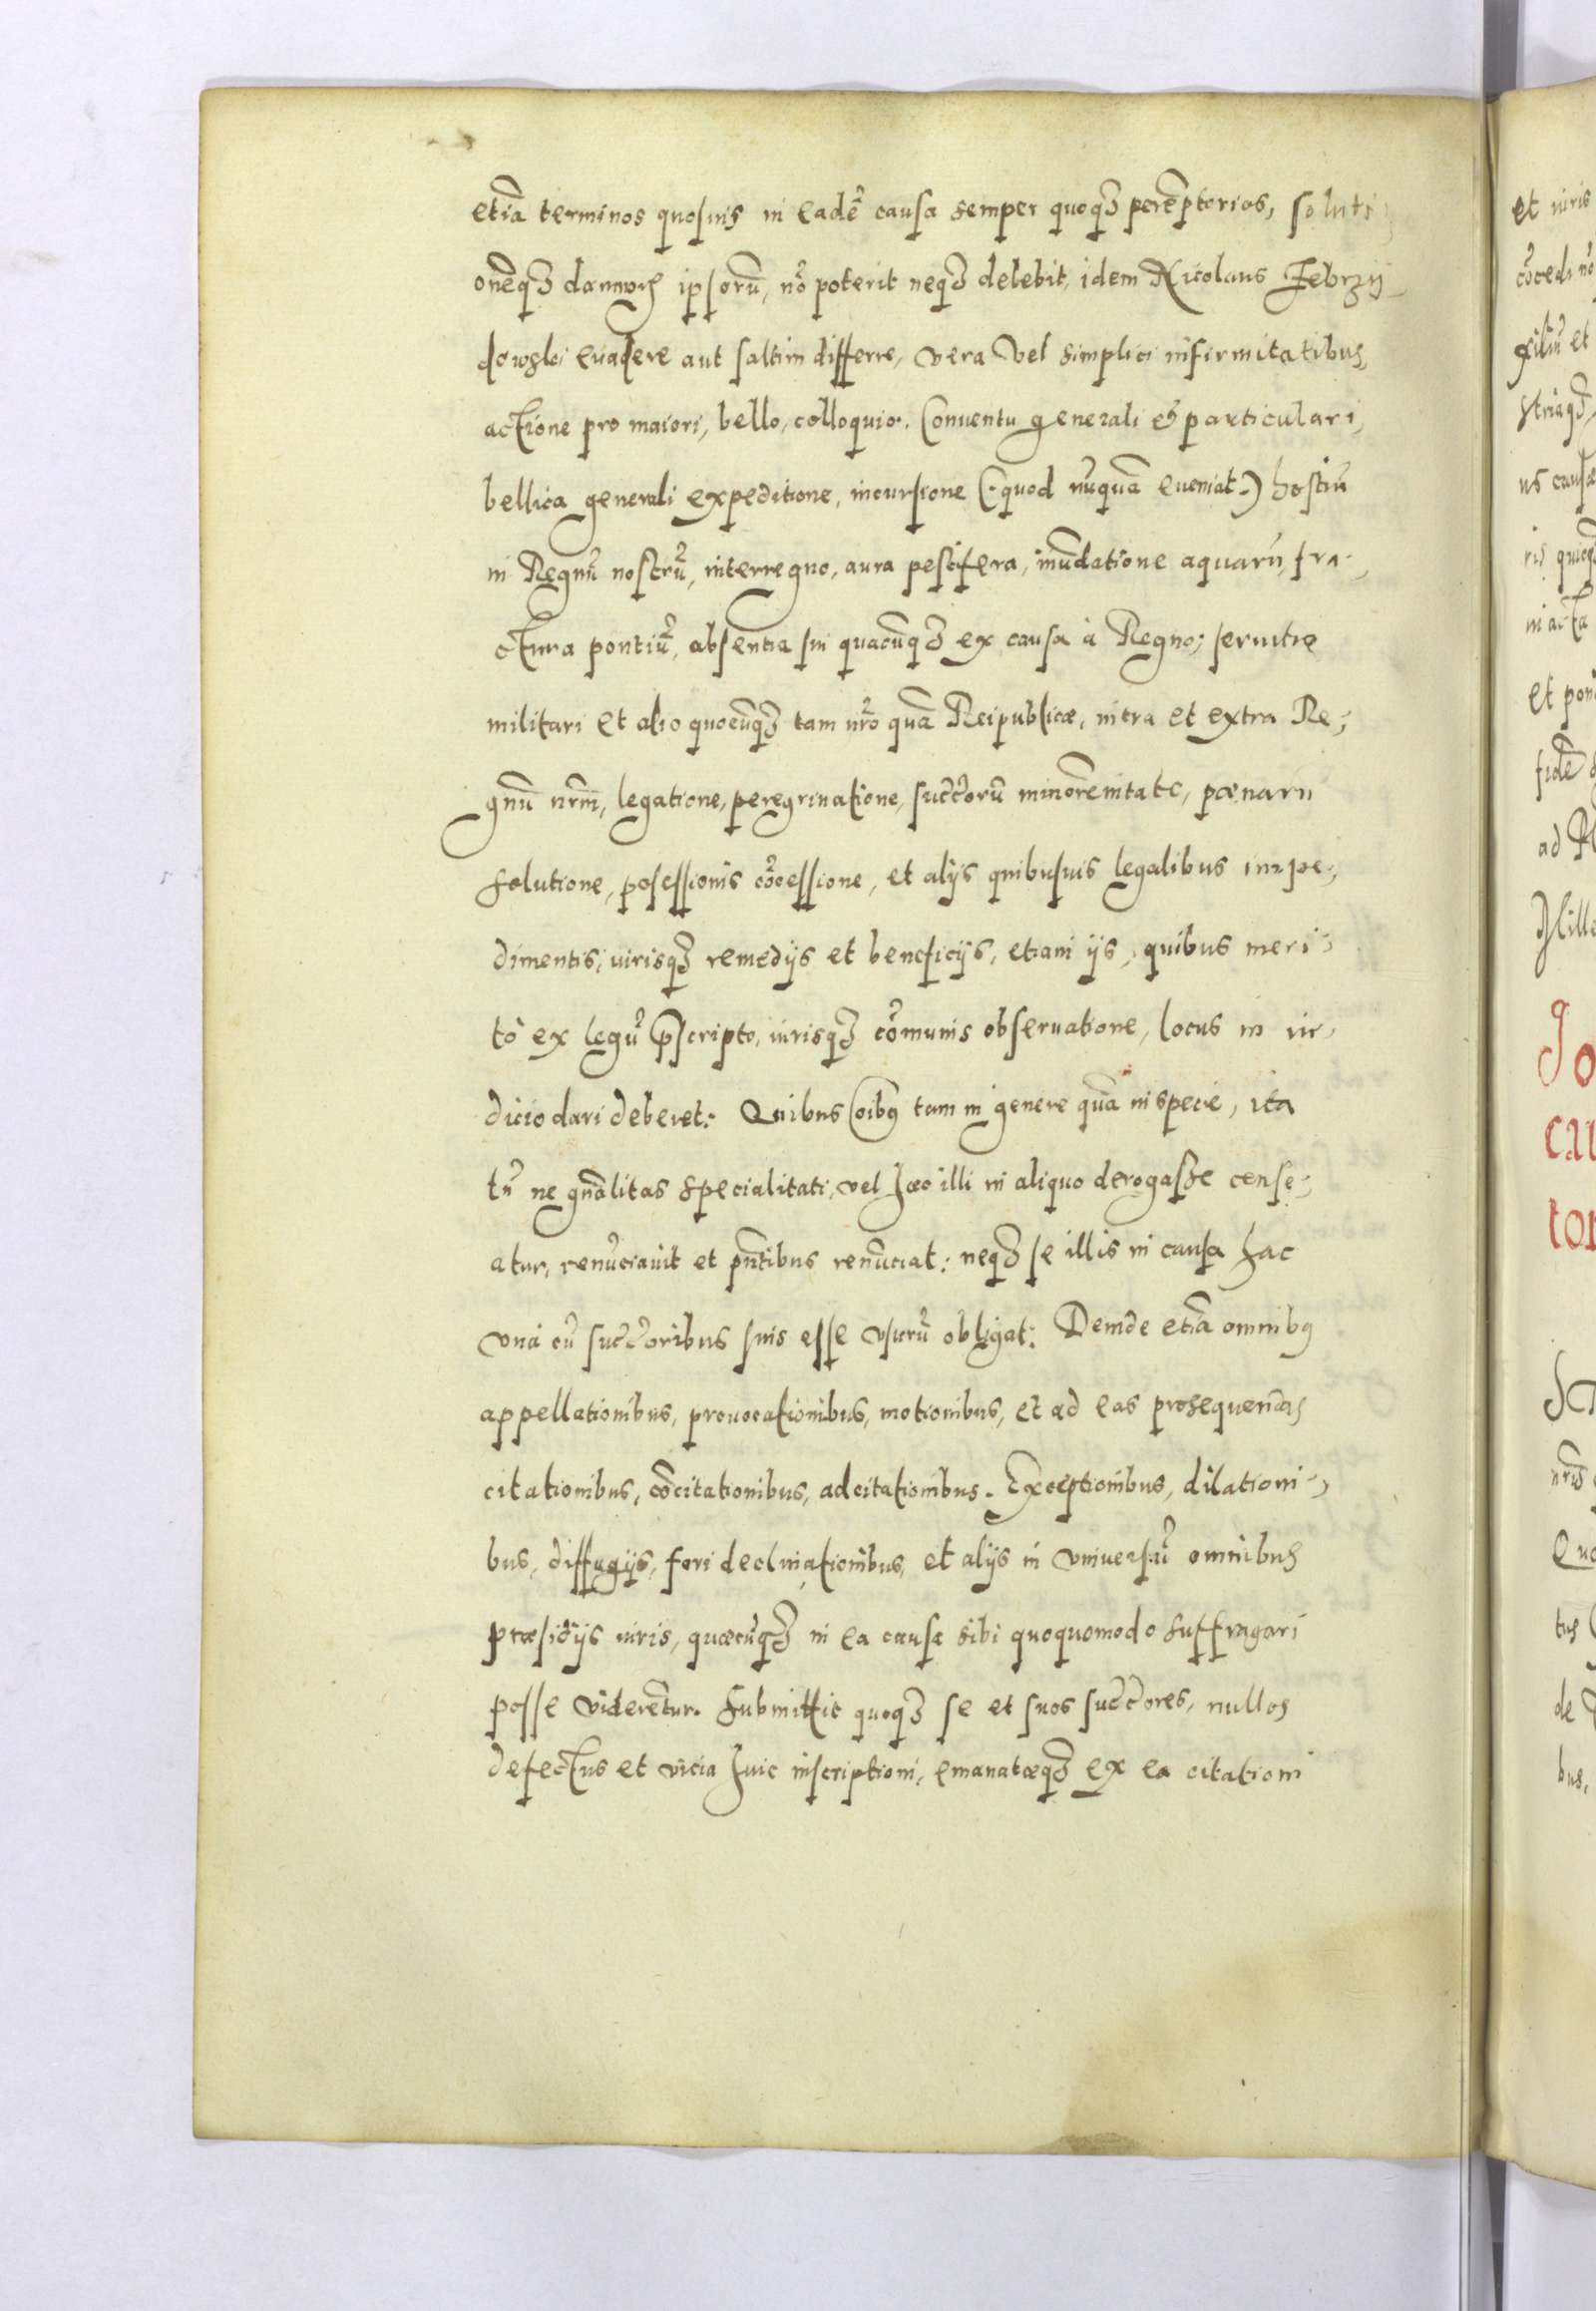 etiã terminos quosuis in eadẽ causa semper quoqʒ perẽptorios, soluti-
onẽqʒ damnorꝫ ipsorũ, nõ poterit neqʒ debebit, idem Nicolaus Jebrzÿ-
dowski euadere aut saltim differre, vera vel simplici infirmitatibus,
actione pro maiori, bello, colloquio. Conuentu generali et particulari,
bellica generali expeditione, incursione (quod nũquã eueniat.) hostiũ
in Regnũ nostrũ, interregno, aura pestifera, inũdatione aquarũ, fra-
ctura pontiũ, absentia sui quacũqʒ ex causa à Regno; seruitio
militari et alio quocũqʒ tam nrõ quã Reipublicæ, intra et extra Re-
gnũ nrm̃, legatione, peregrinatione, succ̃orũ minorẽnitate, pœnarũ
solutione, posessionis cõcessione, et alÿs quibusuis legalibus impe-
dimentis, iurisqʒ remedÿs et beneficÿs, etiam ÿs, quibus meri-
tò ex legũ p̃scripto, iurisqʒ cõmunis obseruatione, locus in iu-
dicio dari deberet: Quibus oibꝫ tam in genere quã in specie, ita
tñ ne gñalitas specialitati, vel hæc illi in aliquo derogasse cense-
atur, renũciauit et pñtibus renũciat: neqʒ se illis in causa hac
vnà cũ succ̃oribus suis esse vsurũ obligat: Deinde etiã omnibꝫ
appellationibus, prouocationibus, motionibus, et ad eas prosequendas
citationibus, cõcitationibus, adcitationibus. Exceptionibus, dilationi-
bus, diffugÿs, fori declinationibus, et alÿs in vniuersũ omnibus
præsidÿs iuris, quæcũqʒ in ea causa sibi quoquomodo suffragari
posse viderẽtur. Submittit quoqʒ se et suos succ̃ores, nullos
defectus et vicia huic inscriptioni, emanatæqʒ ex ea citationi
et iuris
cõcedi nõ
filiũ et
us causæ
in acta
et
fidẽ
ad
Jo
cau
tor
tus
de
bus,